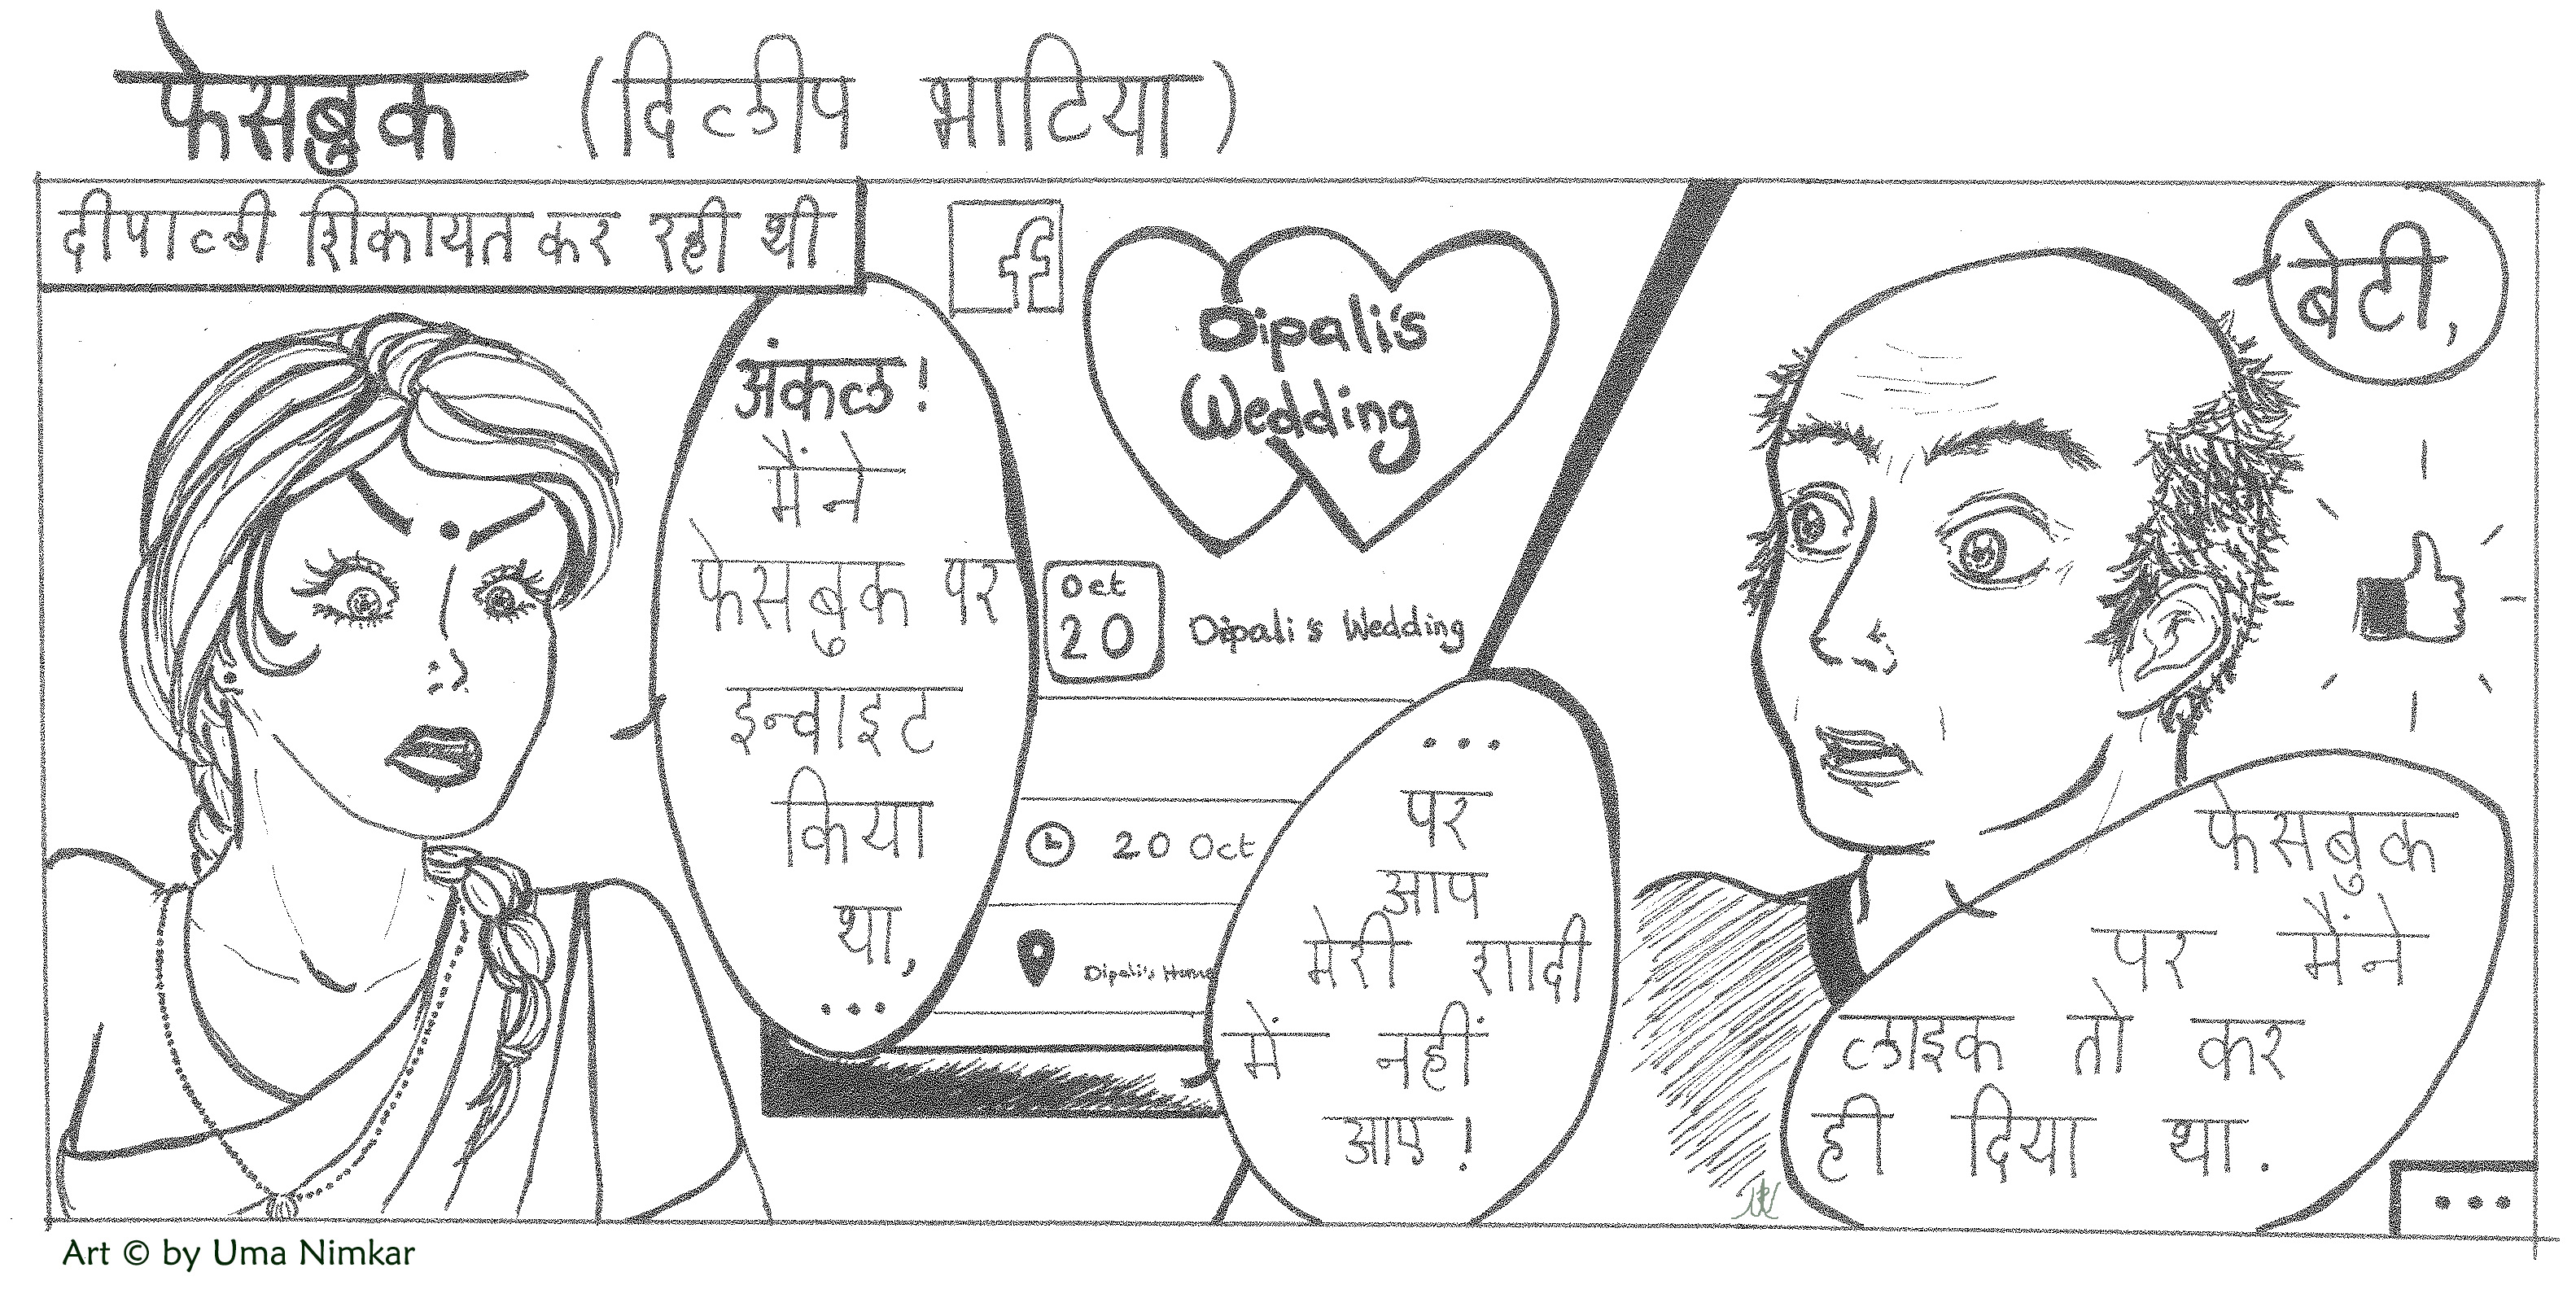 फेसबुक (दिलीप भाटिया)
दीपाली शिकायत कर रही थी
अंकल!
मैंने
फेसबुक पर
इन्वाइट
किया
था,
...
f
Dipali's
Wedding
Oct
20
Dipali's Wedding
20 Oct
Dipali's Home
...
पर
आप
मेरी शादी
में नहीं
आए!
बेटी,
फेसबुक
पर मैंने
लाइक तो कर
ही दिया था.
...
Art © by Uma Nimkar